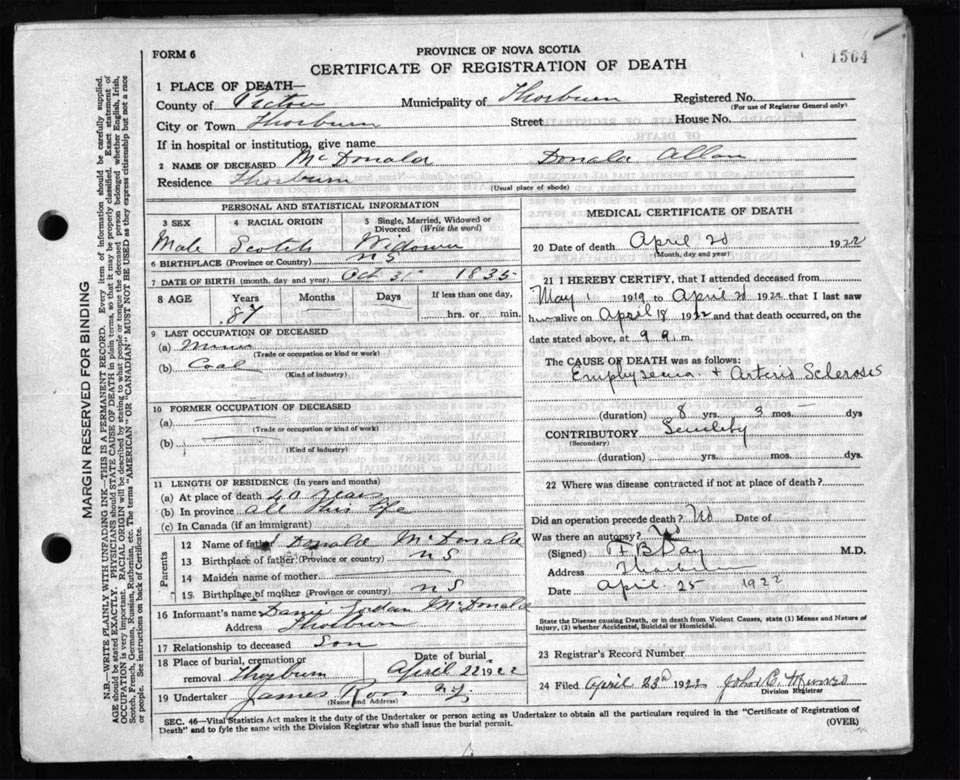 FORM 6
PROVINCE OF NOVA SCOTIA
1504
CERTIFICATE OF REGISTRATION OF DEATH
1 PLACE OF DEATH—
County of Pictou Municipality of Thorburn Registered No.
(For use of Registrar General only)
City or Town Thorburn Street House No.
If in hospital or institution, give name
2 NAME OF DECEASED McDonald Donald Allan
Residence Thorburn (Usual place of abode)
PERSONAL AND STATISTICAL INFORMATION
3 SEX 4 RACIAL ORIGIN 5 Single, Married, Widowed or Divorced (Write the word)
Male Scotch Widower
6 BIRTHPLACE (Province or Country) N S
7 DATE OF BIRTH (month, day and year) Oct 31st 1835
8 AGE Years Months Days If less than one day,
87 hrs. or min.
9 LAST OCCUPATION OF DECEASED
(a) Miner
(Trade or occupation or kind or work)
(b) Coal
(Kind of industry)
10 FORMER OCCUPATION OF DECEASED
(a)
(Trade or occupation or kind of work)
(b)
(Kind of industry)
11 LENGTH OF RESIDENCE (In years and months)
(a) At place of death 40 years
(b) In province all this life
(c) In Canada (if an immigrant)
Parents
12 Name of father Donald McDonald
13 Birthplace of father (Province or country) N S
14 Maiden name of mother
15 Birthplace of mother (Province or country) N S
16 Informant's name McDonald
Address Thorburn
17 Relationship to deceased Son
18 Place of burial, cremation or removal Thorburn Date of burial April 22 1922
19 Undertaker James Roos N.G.
(Name and Address)
MEDICAL CERTIFICATE OF DEATH
20 Date of death April 20 1922
(Month, day and year)
21 I HEREBY CERTIFY, that I attended deceased from
May 1 1919 to April 20 1922 that I last saw
him alive on April 18 1922 and that death occurred, on
date stated above, at 9 a. m.
The CAUSE OF DEATH was as follows:
Emphysema + Arterio Sclerosis
(duration) 8 yrs. 3 mos. — dys
CONTRIBUTORY Senility
(Secondary)
(duration) yrs. mos. dys
22 Where was disease contracted if not at place of death?
Did an operation precede death? No Date of
Was there an autopsy? No
(Signed) F B Day M.D.
Address Thorburn
Date April 25 1922
State the Disease causing Death, or in death from Violent Causes, state (1) Means and Nature of
Injury, (2) whether Accidental, Suicidal or Homicidal.
23 Registrar's Record Number
24 Filed April 23rd 1922 John C. Munro
Division Registrar
SEC. 46—Vital Statistics Act makes it the duty of the Undertaker or person acting as Undertaker to obtain all the particulars required in the "Certificate of Registration of
Death" and to fyle the same with the Division Registrar who shall issue the burial permit. (OVER)
MARGIN RESERVED FOR BINDING
N.B.—WRITE PLAINLY WITH UNFADING INK—THIS IS A PERMANENT RECORD. Every item of information should be carefully supplied.
AGE should be stated EXACTLY. PHYSICIANS should STATE CAUSE OF DEATH in plain terms, so that it may be properly classified. Exact statement of
OCCUPATION is very important. RACIAL ORIGIN will be described by stating to what people or tongue the deceased person belonged whether English, Irish,
Scotch, French, German, Russian, Ruthenian, etc. The terms "AMERICAN" OR "CANADIAN" MUST NOT BE USED as they express citizenship but not a race
or people. See instructions on back of Certificate.